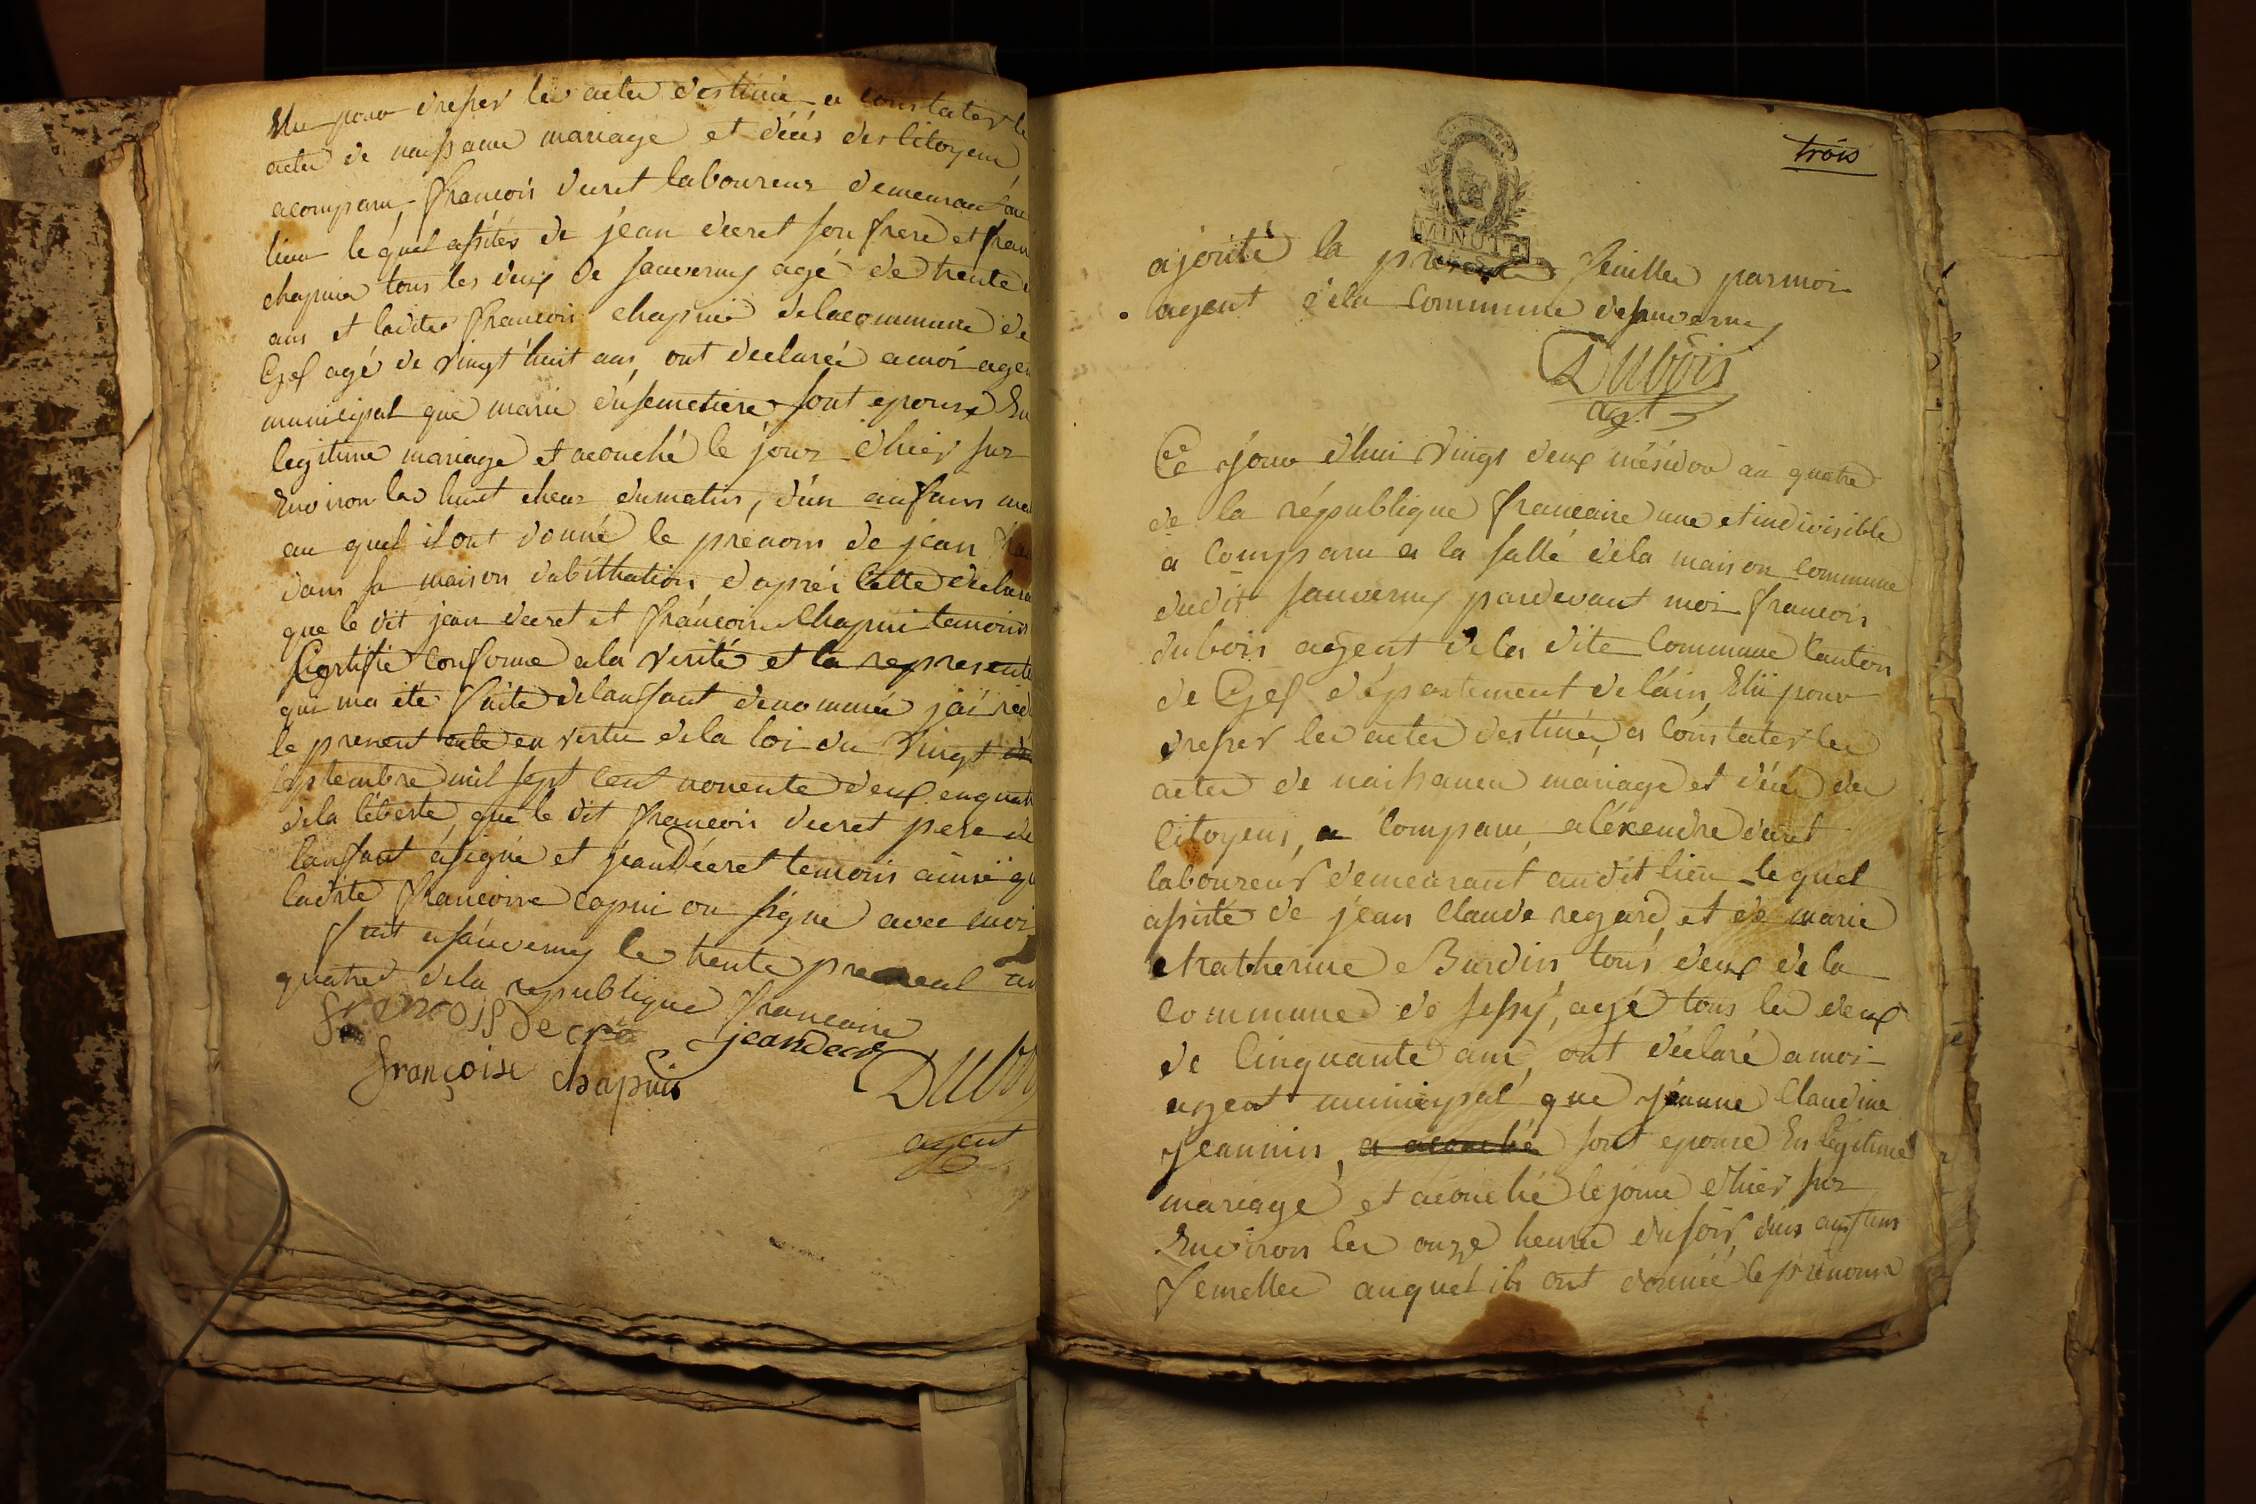 Elu pour dresser les actes destiné a constater le
actes de naissance mariage et décés des Citoyens
acomparu, françois decret laboureur demeurant au
lieu le quel assités de jean decret son frere et fran
chapuis tous les deux de sauverny agé de trente
ans et ladite françoise chapuis delacommune de
Gex agé de vingt huit ans, ont declarée amoi agen
municipal que marie dusemetiere sont epouse En
legitime mariage et acouché le jour d'hier sur
Environ les huit heur dumatin, d'un anfans mal
au quel il ont donné le prénom de jean
dans sa maison dabithation, daprés Cette declara
que le dit jean decret et françoise Chapui temoins
Certifié conforme ala verité et la represente
qui ma été faite delanfant denommée j'ai red
le present acte en vertu dela loi du vingt
septembre mil sept cent nonente deux enquat
dela léberté, que le dit françois decret pere de
lanfant asigné et jean Décret temoins ainsi qu
ladite françoise capui on signé avec moi
fait a sauverny le trente prereal an
quatre dela republique francaise
françois decre jean decré
françoise chapuis Dubois
agent
trois
MINUTE
ajouté la presente feuille parmoi
agent dela Commune desauverny
Dubois
agt
Ce jour d'hui vingt deux mésidor an quatre
de la république francaise une et indivisible
a Comparu a la salle dela maison commune
dudit sauverny pardevant moi francois
dubois agent dela dite Commune Canton
de Gex département delain, Elu pour
dresser les actes destinés a Constater les
actes de naissances mariage et décés des
Citoyens, a Comparu, aléxendre decret
laboureur demeurant audit lieu lequel
assisté de jean Claude regard, et de marie
Katherine Burdin tous deux de la
commune de sessy, agé tous les deux
de Cinquante ans, ont déclaré amoi
agent municipal que jeanne Claudine
jeannin, a acouché sont epouse En légitime
mariage, et acouché le jour d'hier sur
Environ les onze heures dusoir, dun anfans
femelle auquel ils ont donnée le prenoms